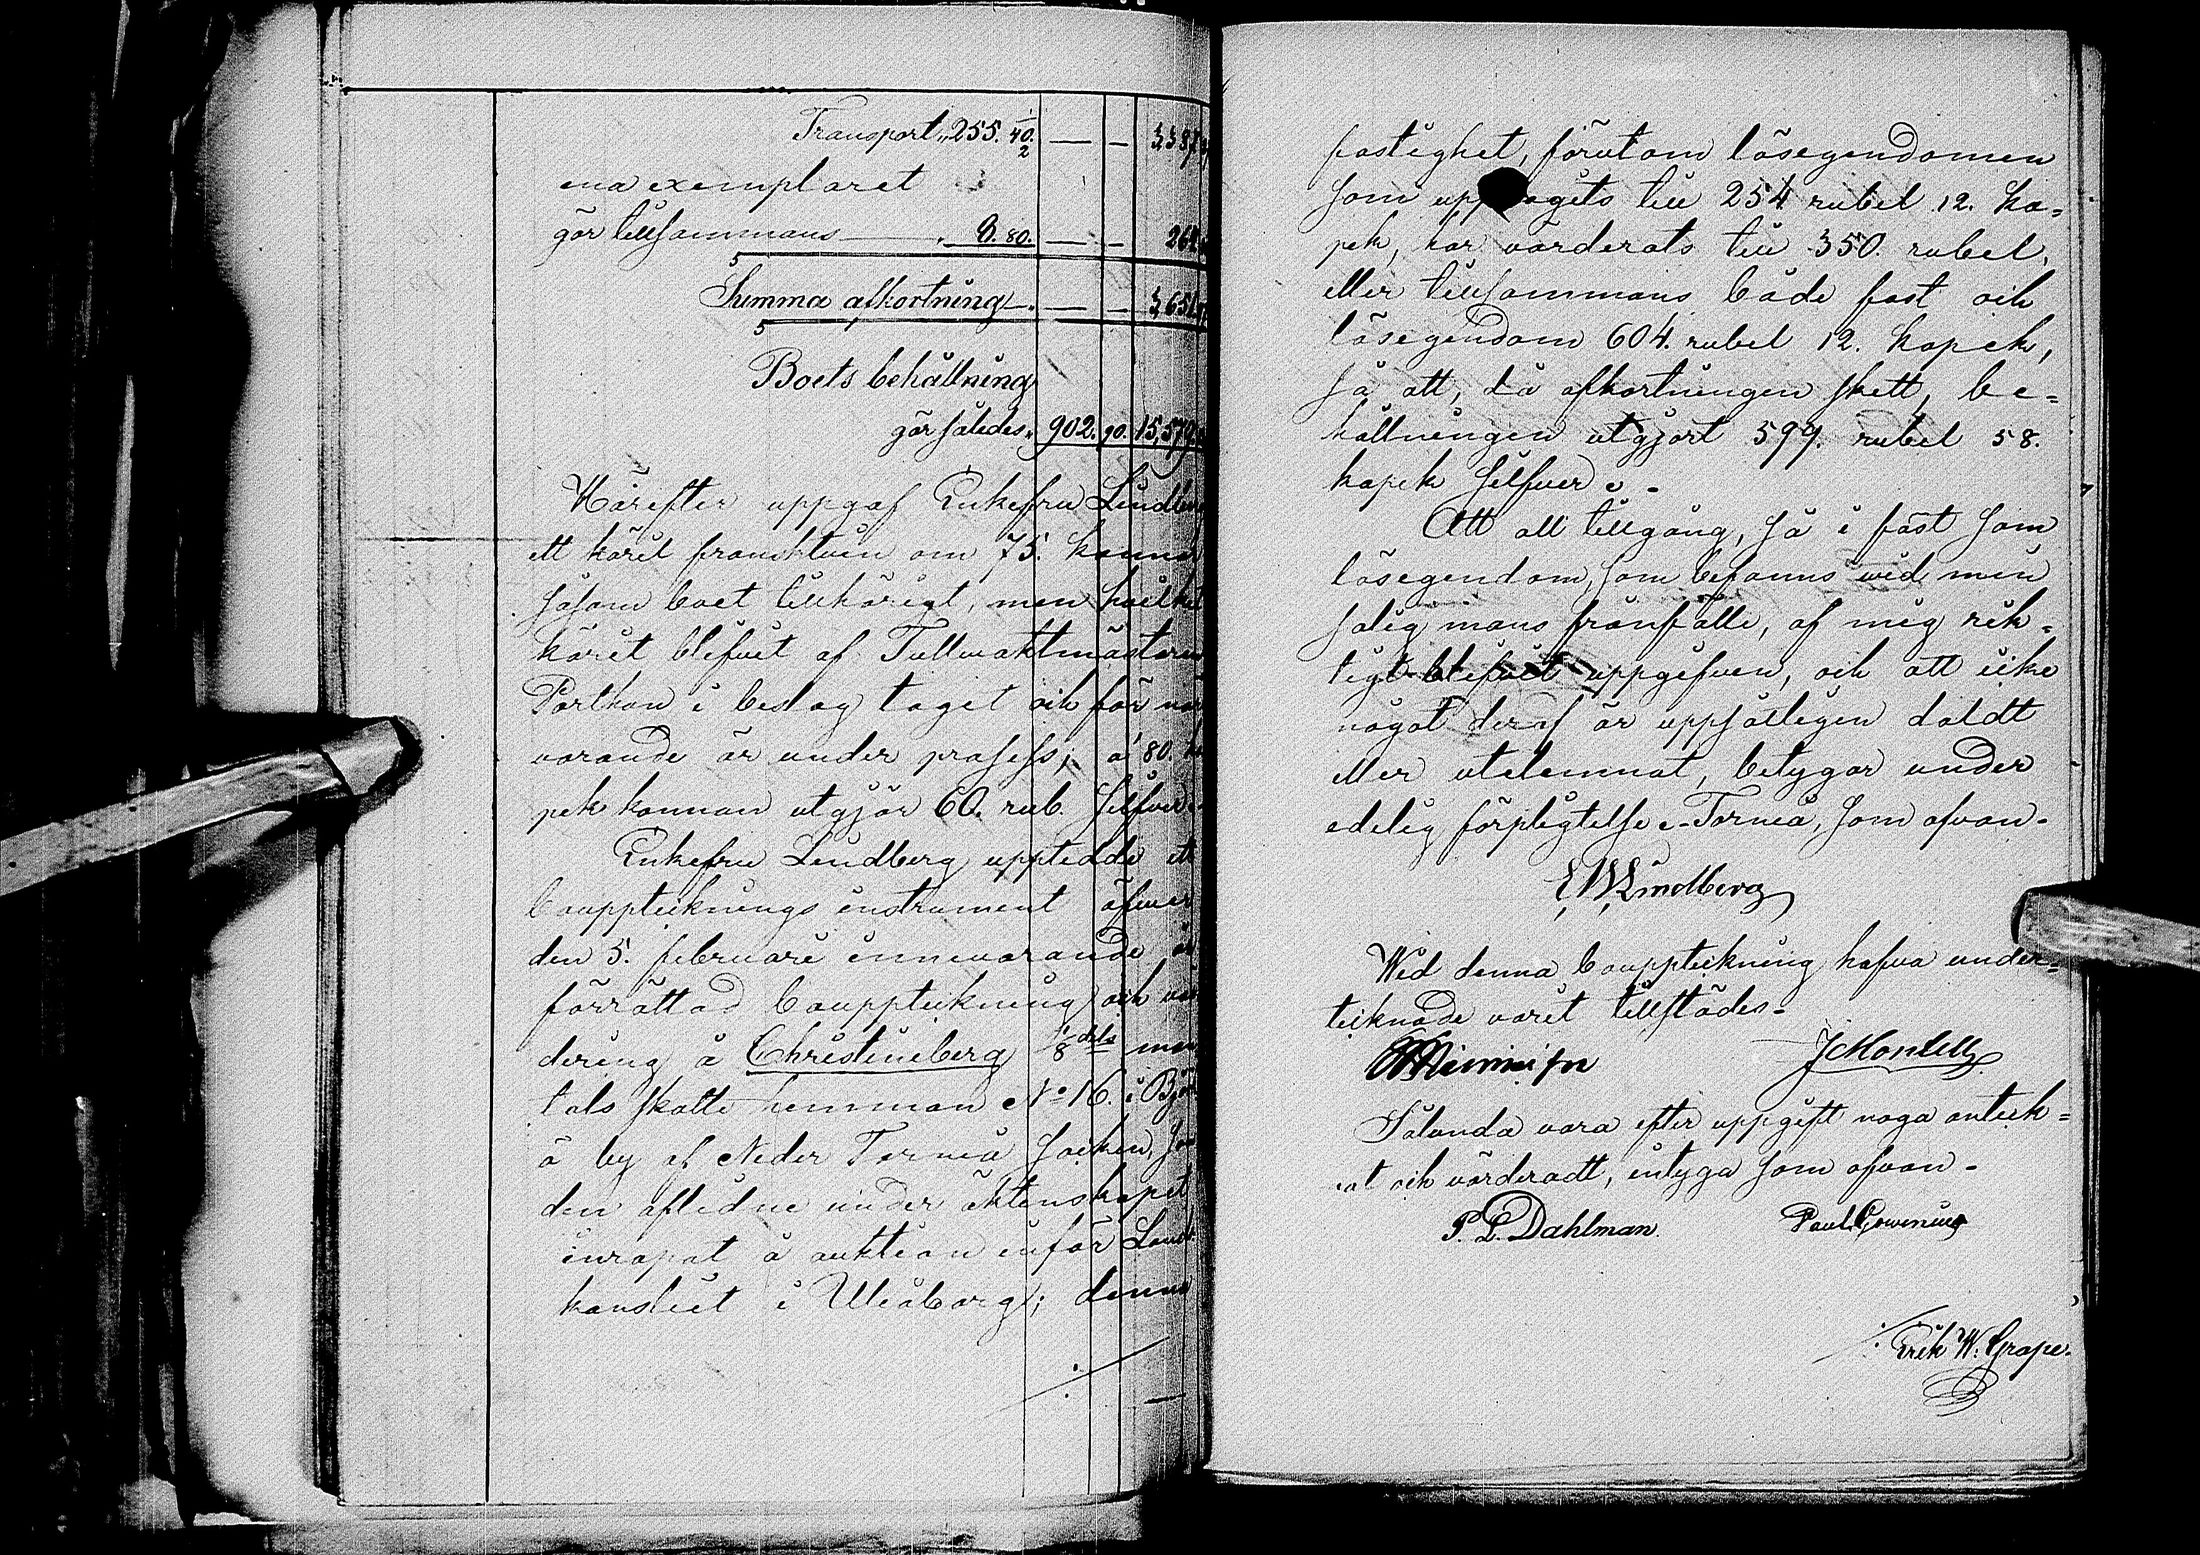 Transport „ 255. 40 1/2 — — 3,387
ena exemplaret
gör tillsammans — „ 8. 80. — — 264
Summa afkortning — „ — — 3,651
Boets behållning
gör således „ 902. 90. 15,579
Härefter uppgaf Enkefru Lindberg
ett käril franskt vin om 75. kannor
såsom boet tillhörigt, men hvilket
käril blifvit af Tullvaktmästaren
Portkan i beslag taget och för när
varande är under prosess; à 80. ko
pek kannan utgjör 60. rub. Silfver.
Enkefru Lindberg uppteddе ett
bouppteknings instrument öfver
den 5. februari innevarande år
förrättad bouppteckning och vär
dering å Christineberg 1/8 dels man
tals skatte hemman No 16. i Björk
ö by af Neder Torneå socken, som
den aflidne under äktenskapet
inropat å auktion inför Lands
kansliet i Uleåborg; denna
fastighet, förutom lösegendomen
som upptagits till 254 rubel 12. ko=
pek, har värderats till 350. rubel,
eller tillsammans både fast och
lösegendom 604. rubel 12. kopek,
så att, då afkortningen skett, be=
hållningen utgjort 599. rubel 58.
kopek Silfver. -
Att all tillgång, så i fast som
lösegendom, som befanns wid min
salig mans frånfälle, af mig rik=
tigt blifvit uppgifven, och att icke
något deraf är uppsåtligen doldt
eller utelemnat, betygar under
edelig förpligtelse. - Torneå, som ofvan -
E W Lindberg
Wid denna bouppteckning hafva under=
tecknade varit tillstädes -
J Montell
Sålunda vara efter uppgift noga anteck=
nat och värderadt, intyga som ofvan -
P. L. Dahlman. Paul
Erik W. Grape.